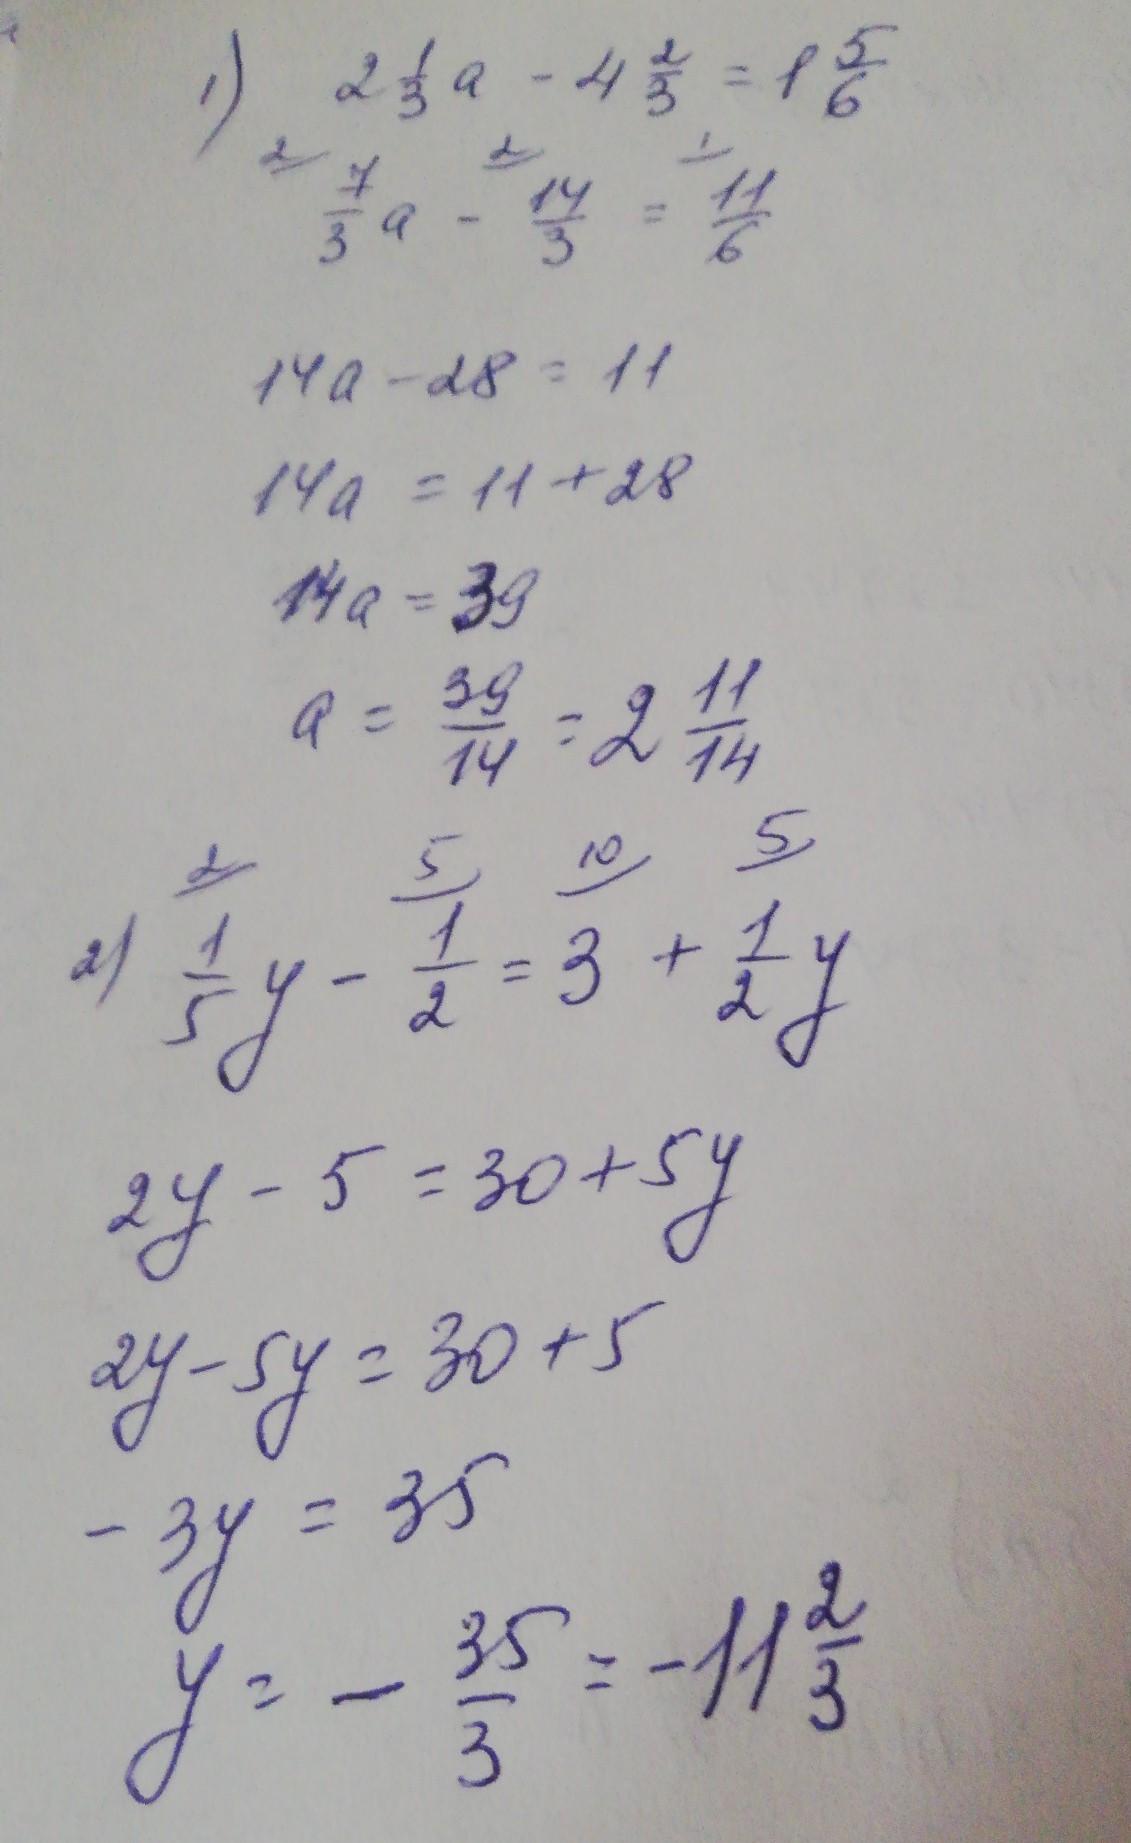 1) 2 1/3 a - 4 2/3 = 1 5/6
2 2 1
7/3 a - 14/3 = 11/6
14a - 28 = 11
14a = 11 + 28
14a = 39
a = 39/14 = 2 11/14
2 5 10 5
2) 1/5 y - 1/2 = 3 + 1/2 y
2y - 5 = 30 + 5y
2y - 5y = 30 + 5
- 3y = 35
y = - 35/3 = -11 2/3